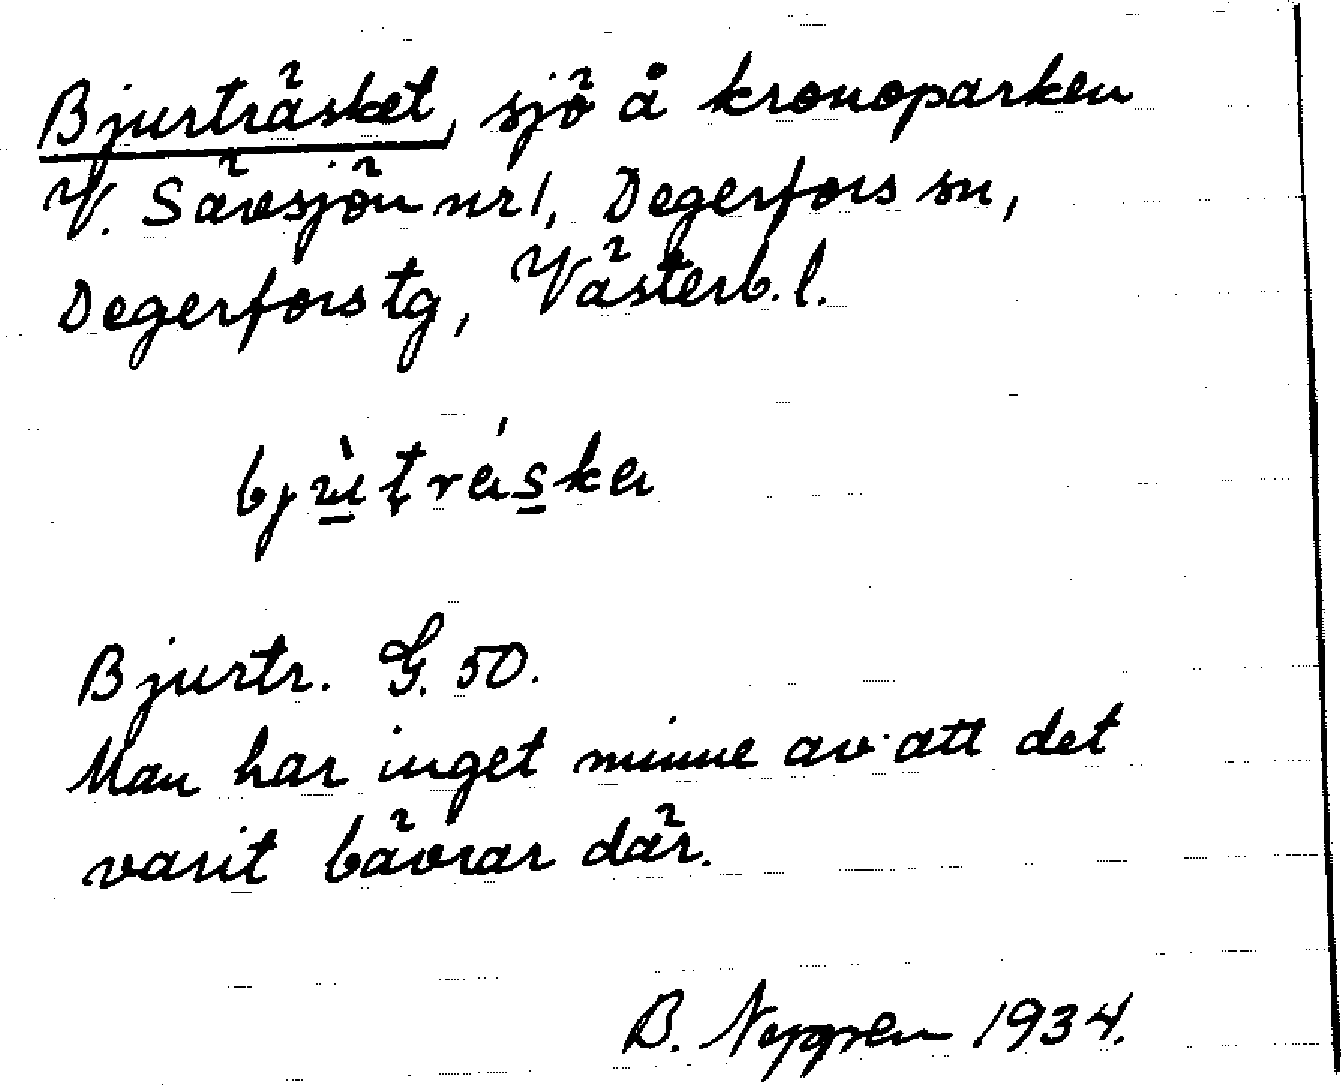 Bjurträsket, sjö å kronoparken
V. Sävsjön nr 1, Degerfors sn,
Degerfors tg, Västerb. l.
bjùtráska
Bjurtr. G. 50.
Man har inget minne av att det
varit bävrar där.
B. 1934.